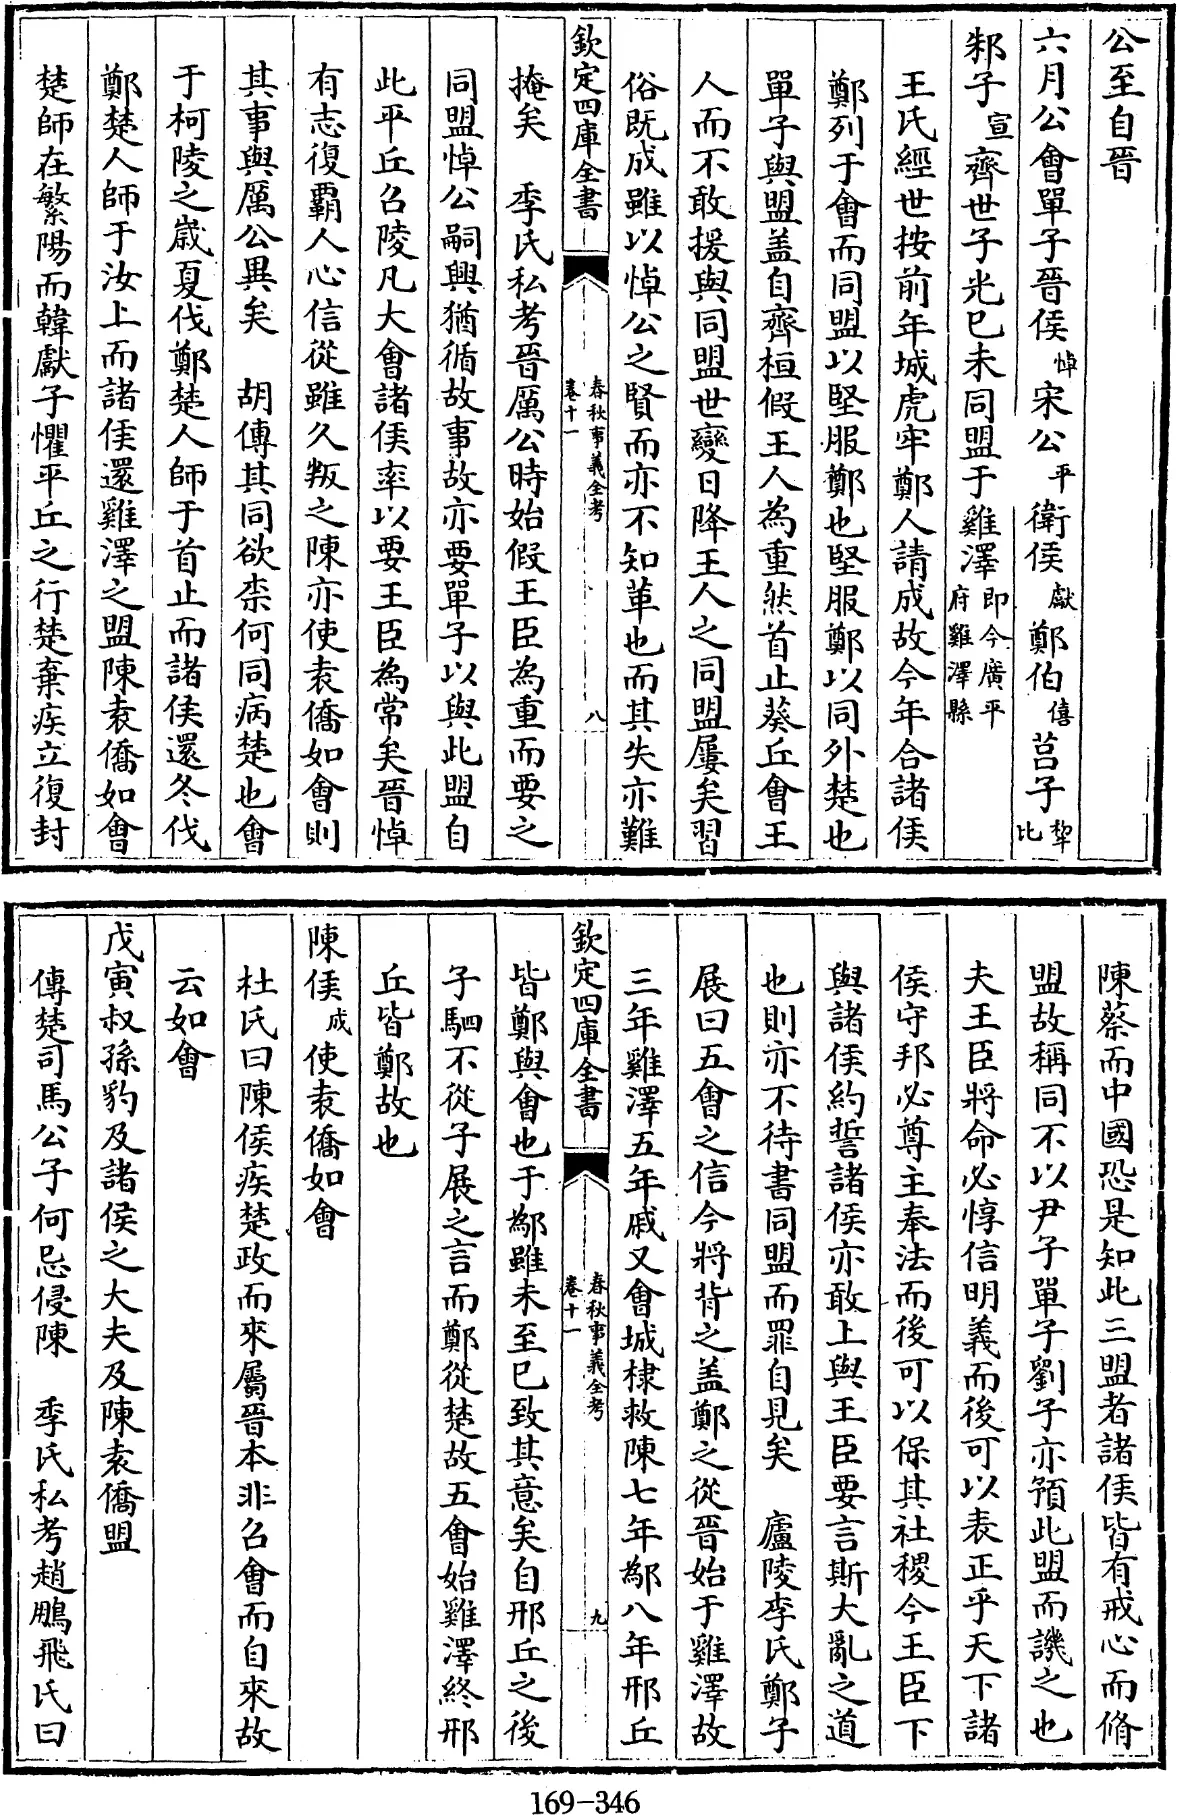 公至自晉
六月公會單子晉侯悼宋公平衛侯獻鄭伯僖莒子犂比
邾子宣齊世子光已未同盟于雞澤即今廣平府雞澤縣
王氏經世按前年城虎牢鄭人請成故今年合諸侯
鄭列于會而同盟以堅服鄭也堅服鄭以同外楚也
單子與盟盖自齊桓假王人為重然首止葵丘會王
人而不敢援與同盟世變日降王人之同盟屢矣習
俗既成雖以悼公之賢而亦不知革也而其失亦難
欽定四庫全書
春秋事義全考
卷十一
八
掩矣　季氏私考晉厲公時始假王臣為重而要之
同盟悼公嗣興猶循故事故亦要單子以與此盟自
此平丘召陵凡大會諸侯率以要王臣為常矣晉悼
有志復霸人心信從雖久叛之陳亦使袁僑如會則
其事與厲公異矣　胡傳其同欲柰何同病楚也會
于柯陵之歲夏伐鄭楚人師于首止而諸侯還冬伐
鄭楚人師于汝上而諸侯還雞澤之盟陳袁僑如會
楚師在繁陽而韓獻子懼平丘之行楚棄疾立復封
陳蔡而中國恐是知此三盟者諸侯皆有戒心而脩
盟故稱同不以尹子單子劉子亦預此盟而譏之也
夫王臣將命必惇信明義而後可以表正乎天下諸
侯守邦必尊主奉法而後可以保其社稷今王臣下
與諸侯約誓諸侯亦敢上與王臣要言斯大亂之道
也則亦不待書同盟而罪自見矣　廬陵李氏鄭子
展曰五會之信今將背之盖鄭之從晉始于雞澤故
三年雞澤五年戚又會城棣救陳七年鄬八年邢丘
欽定四庫全書
春秋事義全考
卷十一
九
皆鄭與會也于鄬雖未至已致其意矣自邢丘之後
子駟不從子展之言而鄭從楚故五會始雞澤終邢
丘皆鄭故也
陳侯成使袁僑如會
杜氏曰陳侯疾楚政而來屬晉本非召會而自來故
云如會
戊寅叔孫豹及諸侯之大夫及陳袁僑盟
傳楚司馬公子何忌侵陳　季氏私考趙鵬飛氏曰
169-346